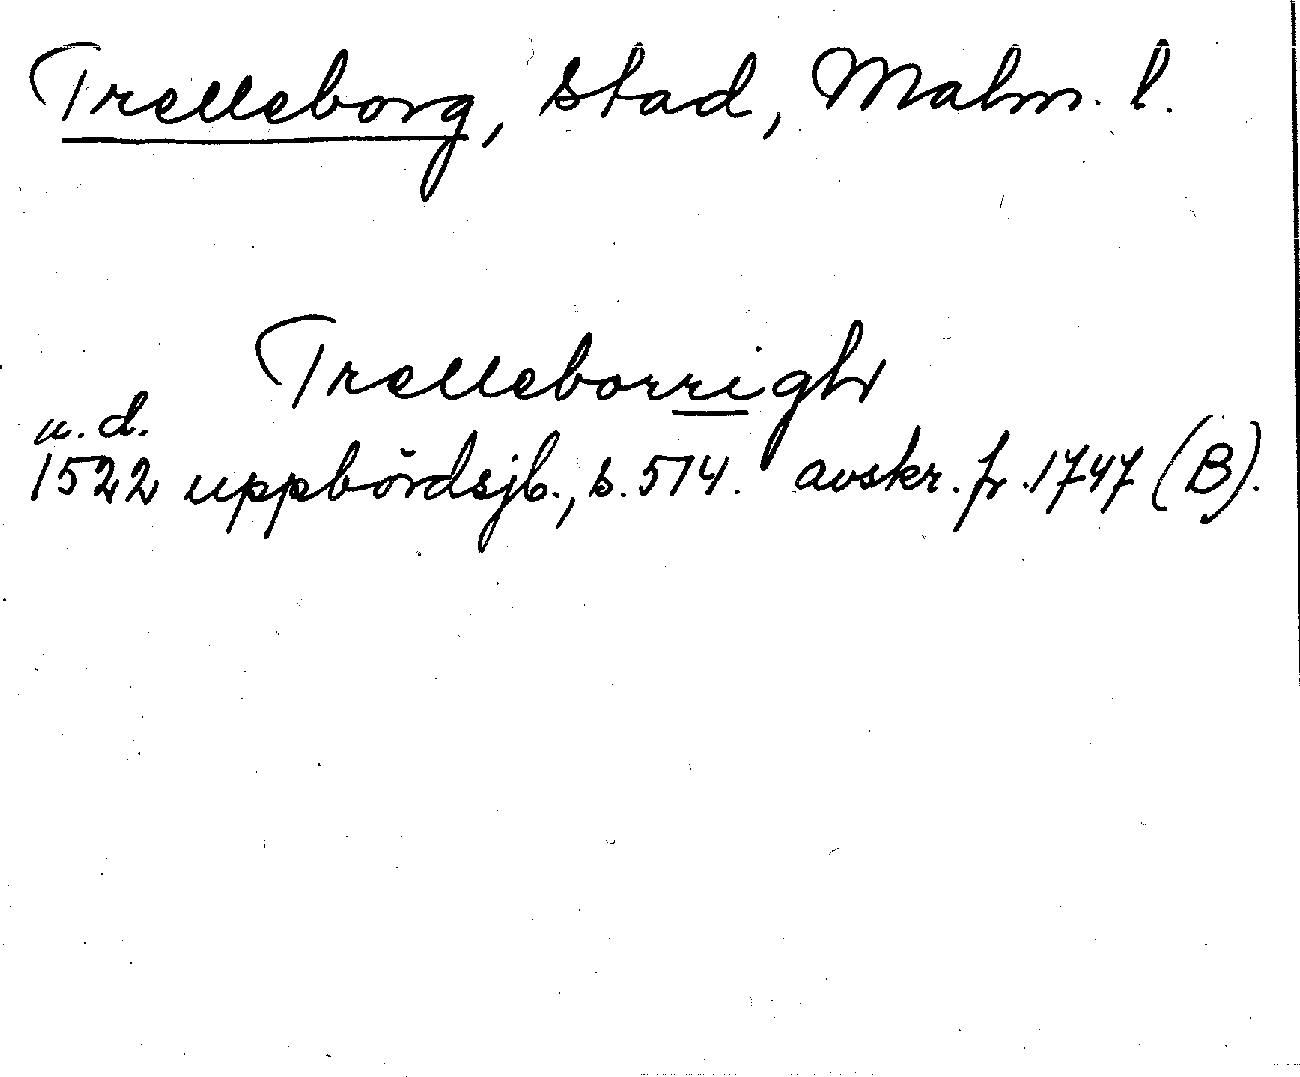 Trelleborg, stad, Malm. l.
Trelleborrigh
u. d.
1522 uppbördsjb., s. 514. avskr. fr. 1747 (B).